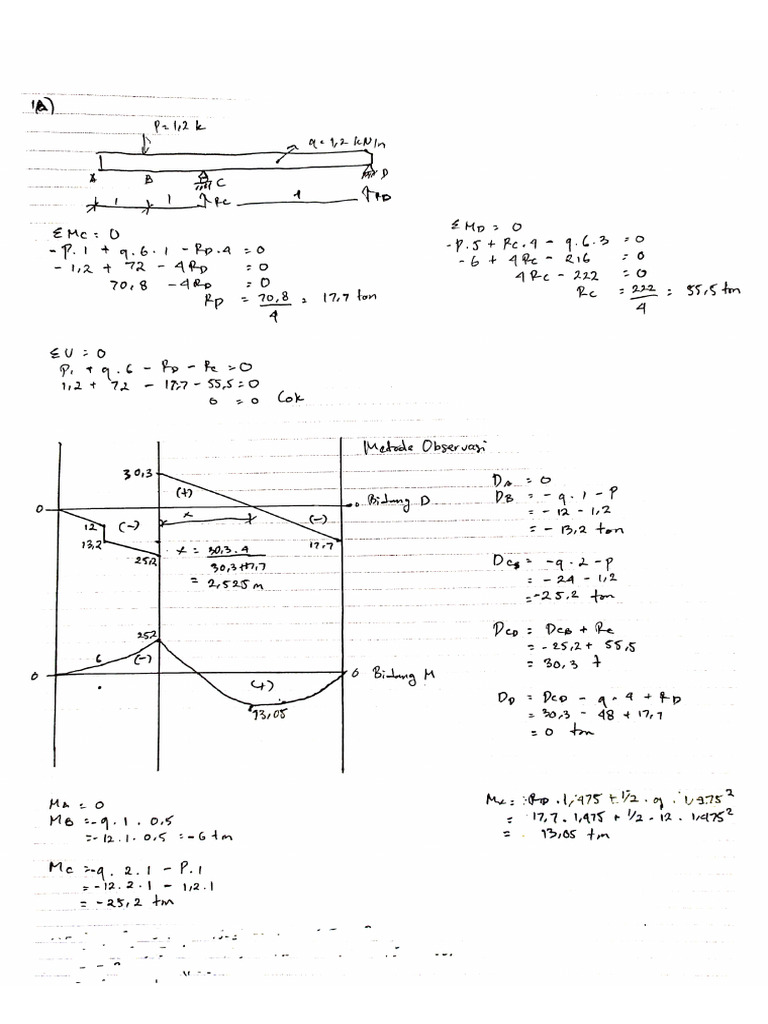 1A)
P = 1,2 k
q = 1,2 kN/m
A B C D
1 1 Rc 4 RD
ΣMc = 0
-P.1 + q.6.1 - RD.4 = 0
-1,2 + 72 - 4RD = 0
70,8 - 4RD = 0
RD = 70,8/4 = 17,7 ton
ΣMD = 0
-P.5 + Rc.4 - q.6.3 = 0
-6 + 4Rc - 216 = 0
4Rc - 222 = 0
Rc = 222/4 = 55,5 ton
ΣV = 0
P + q.6 - RD - Rc = 0
1,2 + 72 - 17,7 - 55,5 = 0
0 = 0 Cok
Metode Observasi
30,3
(+)
0
x
0 Bidang D
12
(-)
(-)
13,2
17,7
25,2
x = 30,3.4 / 30,3+17,7
= 2,525 m
25,2
6
(-)
0
0 Bidang M
(+)
13,05
DA = 0
DB = -q.1 - P
= -12 - 1,2
= -13,2 ton
DCB = -q.2 - P
= -24 - 1,2
= -25,2 ton
DCD = DCB + Rc
= -25,2 + 55,5
= 30,3 t
DD = DCD - q.4 + RD
= 30,3 - 48 + 17,7
= 0 ton
MA = 0
MB = -q.1.0,5
= -12.1.0,5 = -6 tm
MC = -q.2.1 - P.1
= -12.2.1 - 1,2.1
= -25,2 tm
Mx = RD.1,475 + 1/2.q.1,475²
= 17,7.1,475 + 1/2.12.1,475²
= 13,05 tm